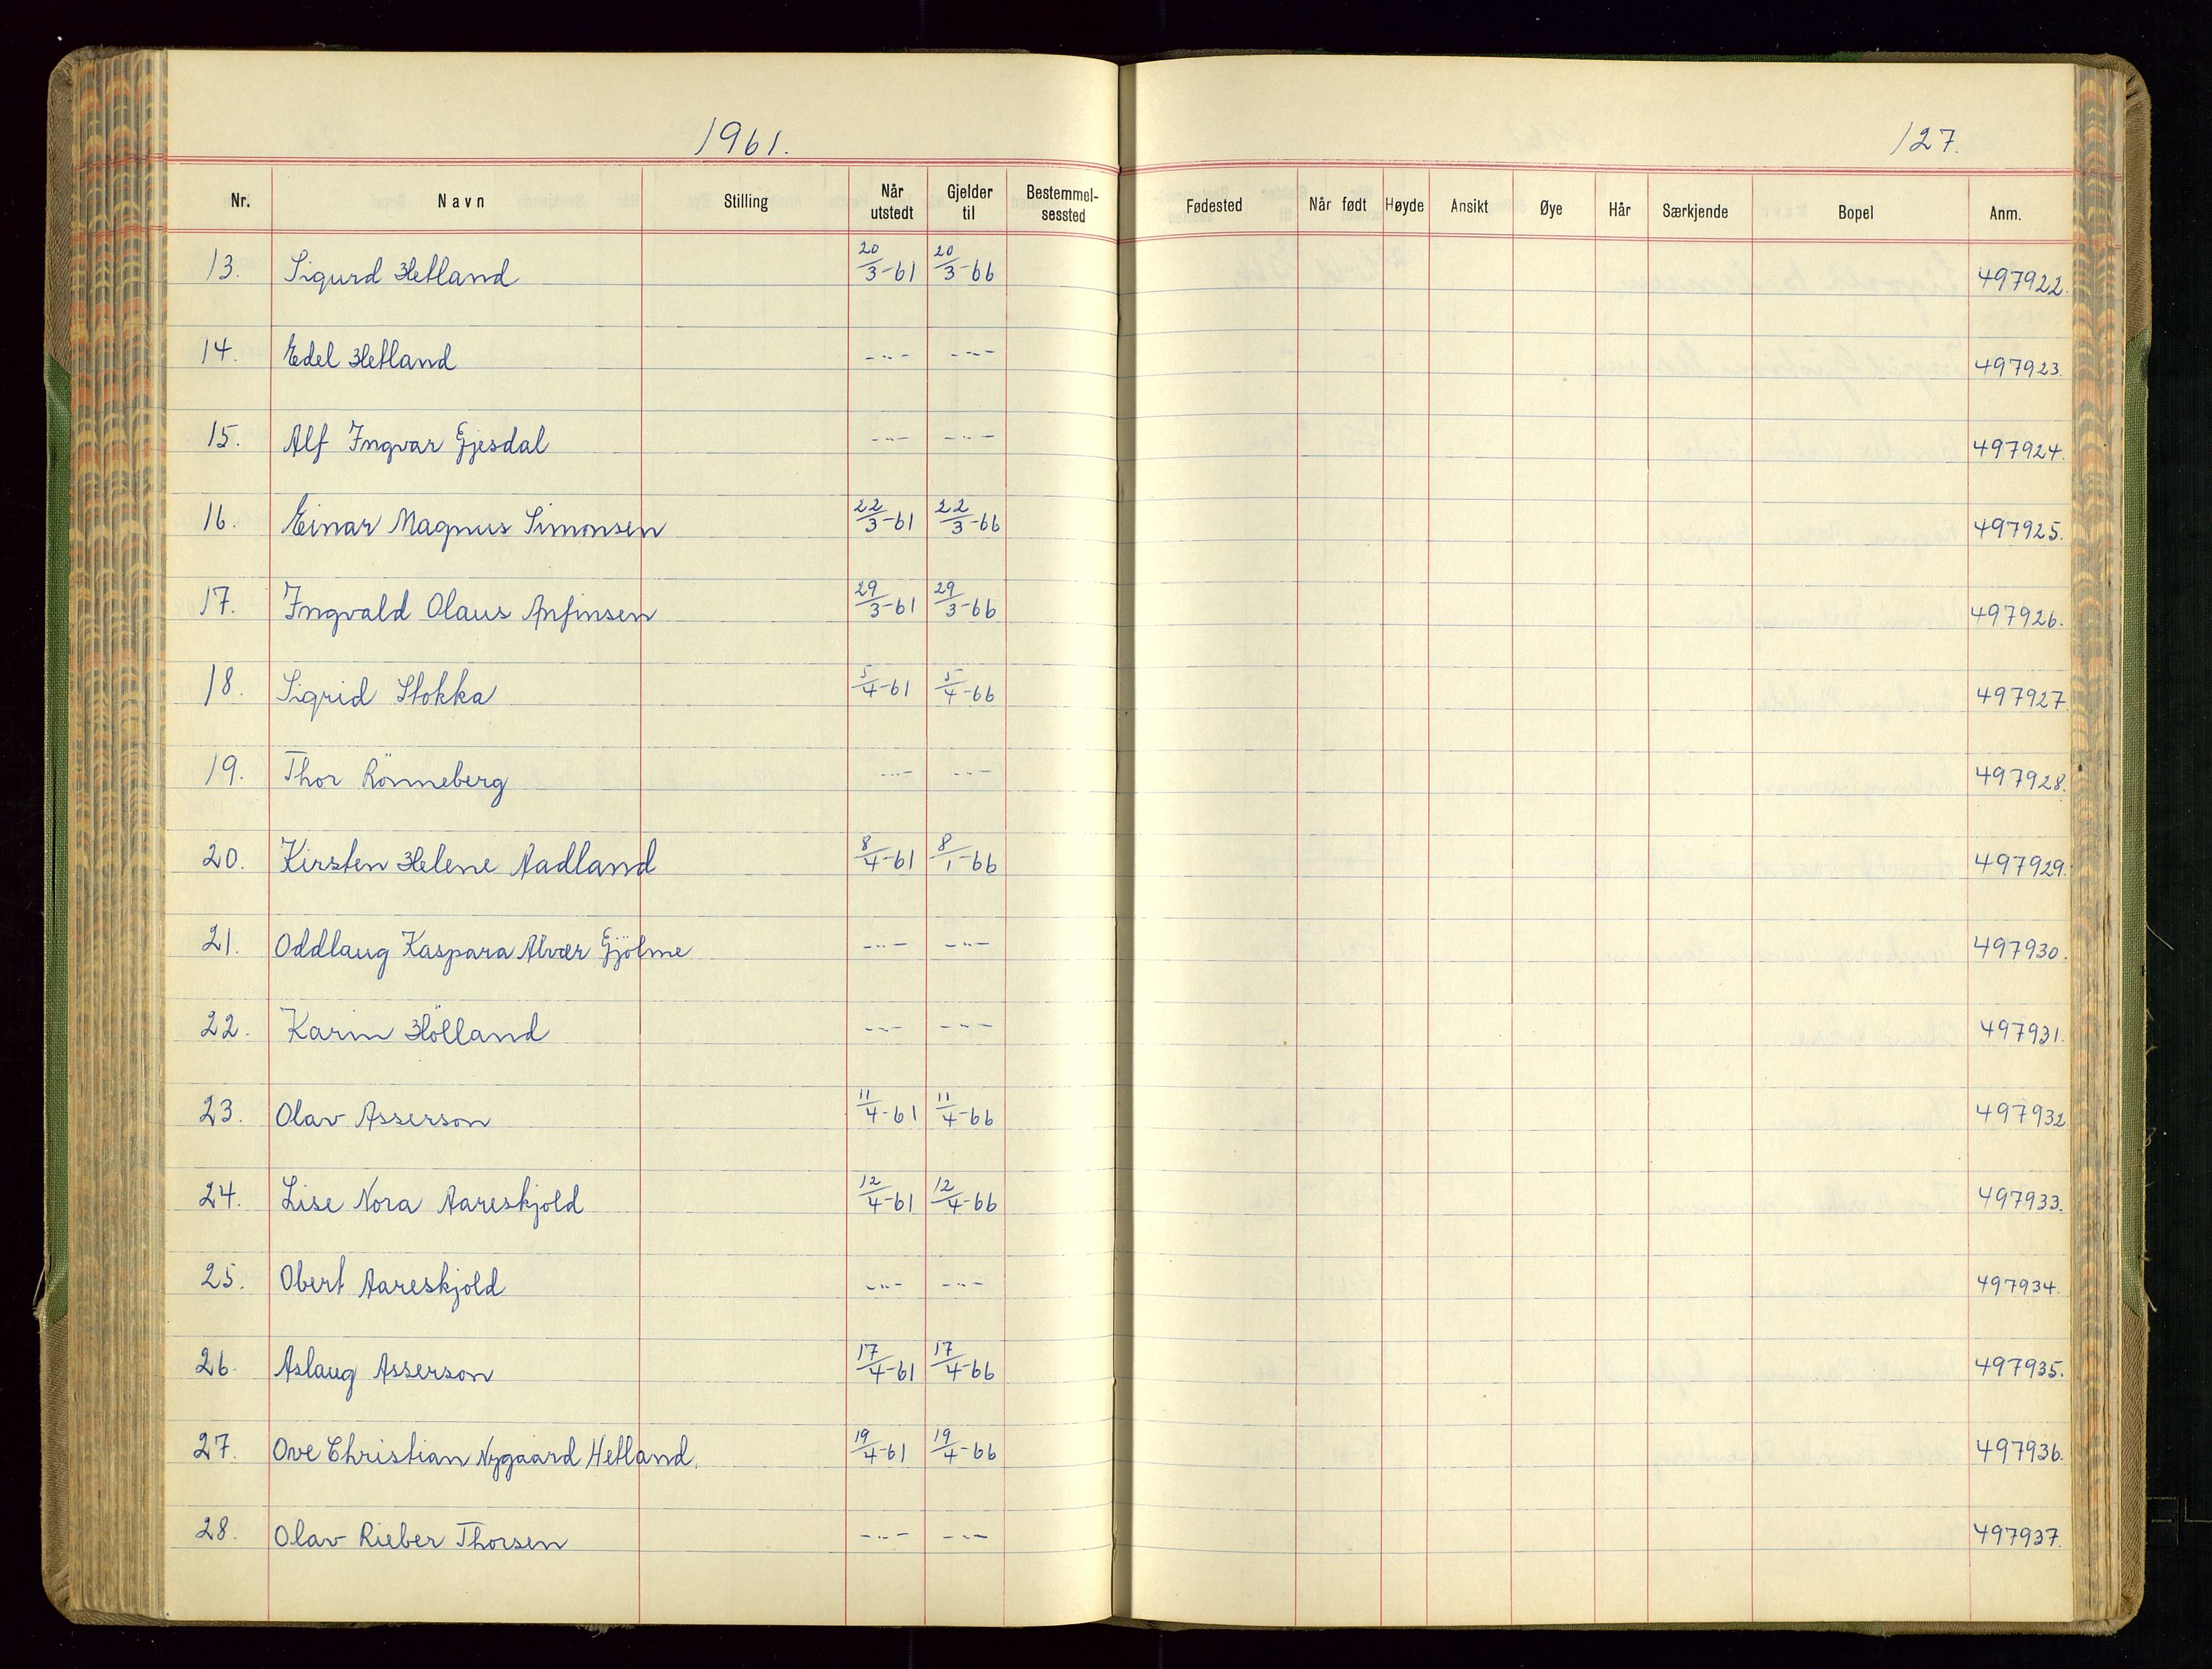 1961.
127.
Nr. Navn Stilling Når utstedt Gjelder til Bestemmel-sessted Fødested Når født Høyde Ansikt Øye Hår Særkjende Bopel Anm.
13. Sigurd Hetland 20/3-61 20/3-66 497922.
14. Edel Hetland -"- -"- 497923.
15. Alf Ingvar Gjesdal -"- -"- 497924.
16. Einar Magnus Simonsen 22/3-61 22/3-66 497925.
17. Ingvald Olaus Anfinsen 29/3-61 29/3-66 497926.
18. Sigrid Stokka 5/4-61 5/4-66 497927
19. Thor Rönneberg -"- -"- 497928.
20. Kirsten Helene Aadland 8/4-61 8/1-66 497929.
21. Oddlaug Kaspara Alvær Gjölme -"- -"- 497930.
22. Karin Hölland -"- -"- 497931.
23. Olav Asserson 11/4-61 11/4-66 497932
24. Lise Nora Aareskjold 12/4-61 12/4-66 497933.
25. Obert Aareskjold -"- -"- 497934.
26. Aslaug Asserson 17/4-61 17/4-66 497935.
27. Ove Christian Nygaard Hetland. 19/4-61 19/4-66 497936.
28. Olav Rieber Thorsen -"- -"- 497937.